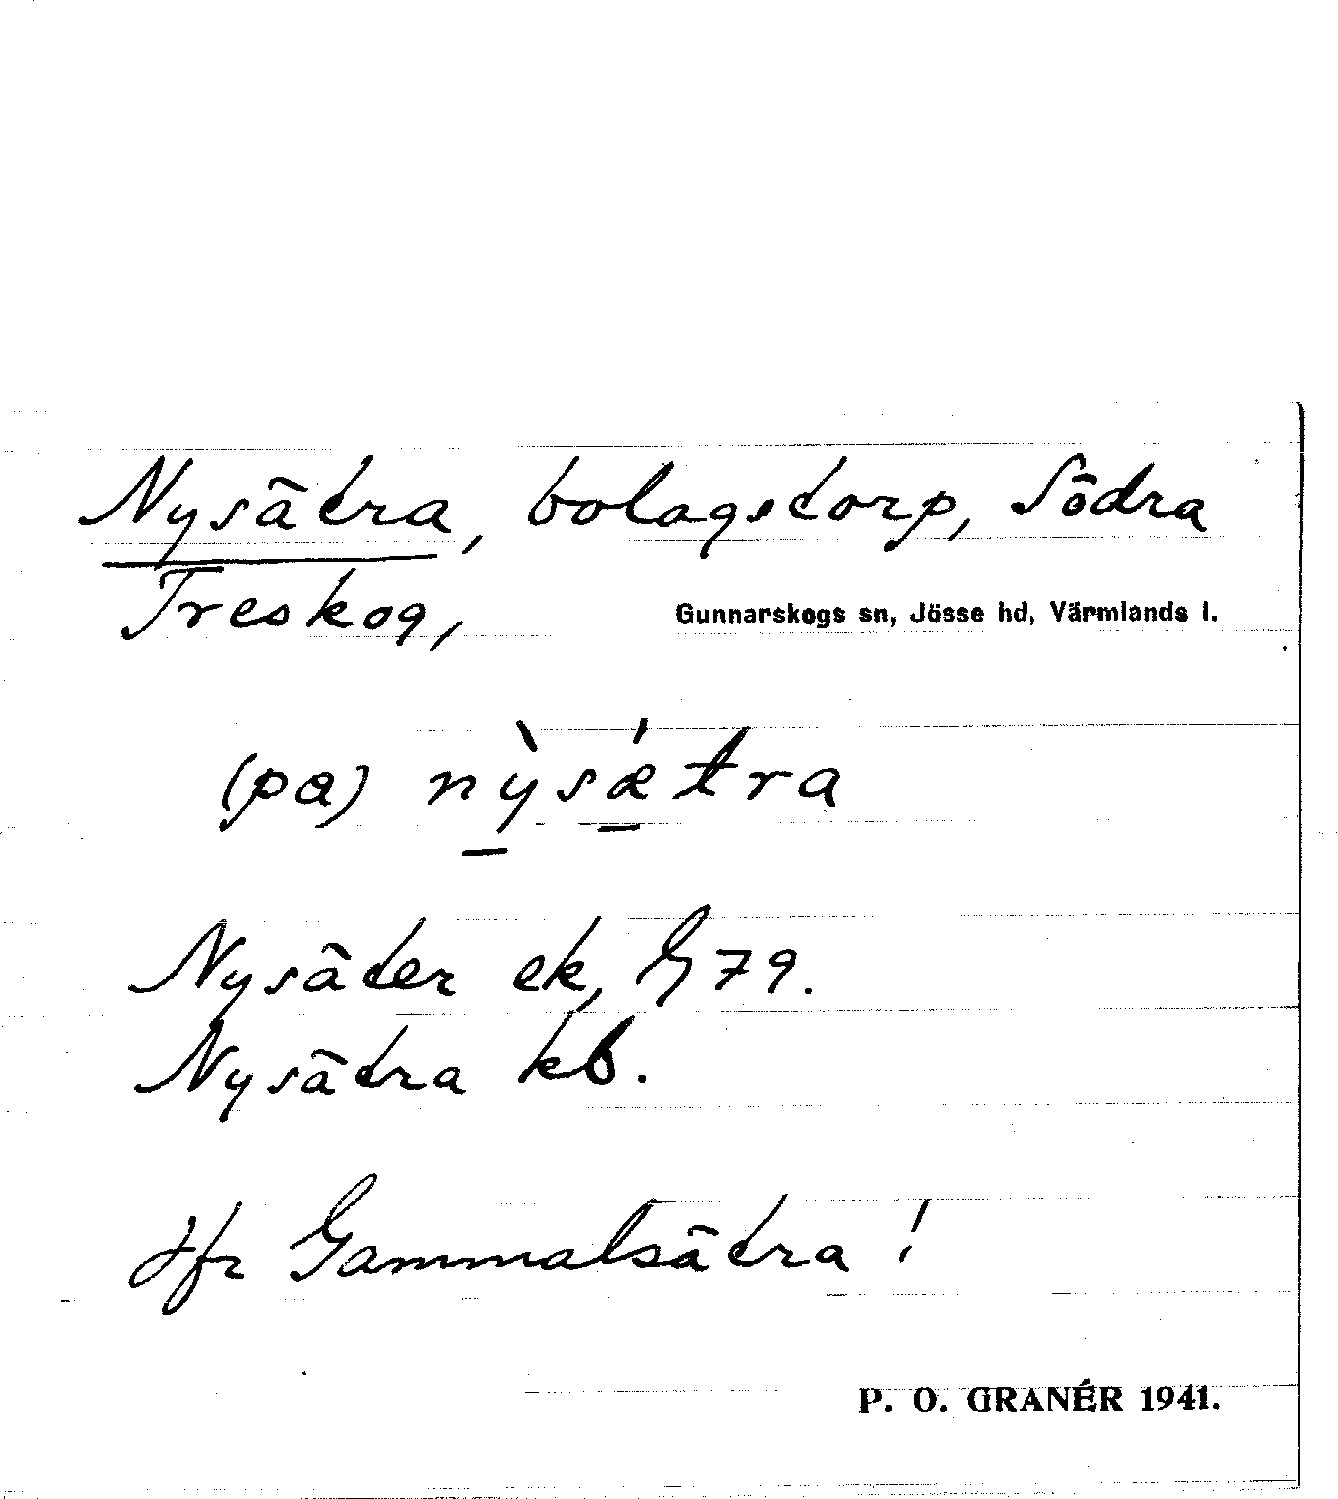 Nysätra, bolagstorp, Södra
Treskog, Gunnarskogs sn, Jösse hd, Värmlands l.
(pa) nỳsǽtra
Nysäter ek, G 79.
Nysätra kb.
Jfr Gammalsätra!
P. O. GRANÉR 1941.